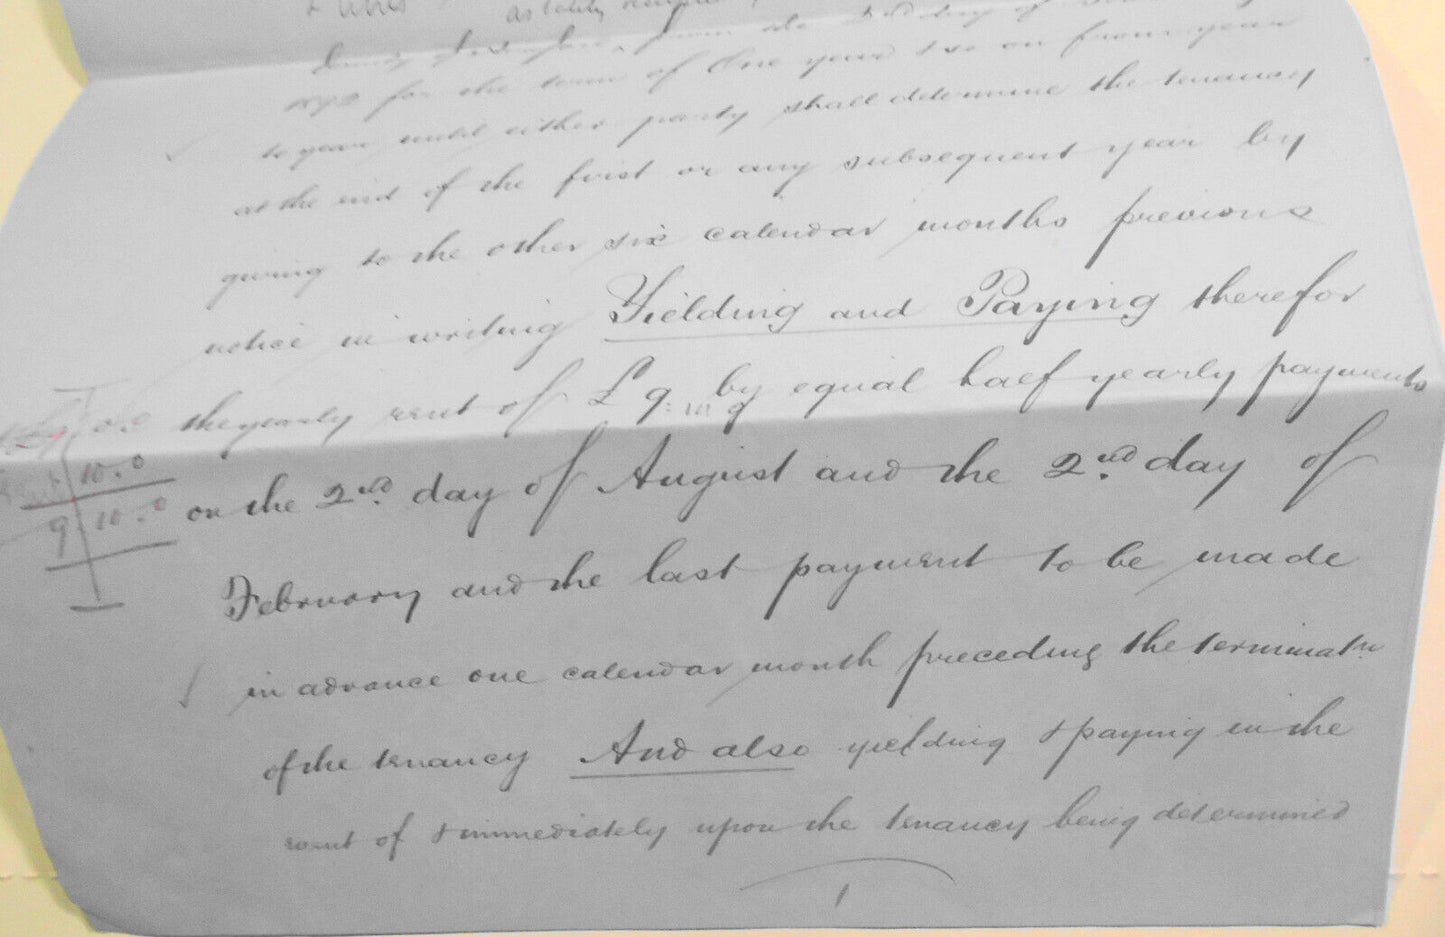 from the 2nd day of
1892 for the term of One year & so on from year
to year until either party shall determine the tenancy
at the end of the first or any subsequent year by
giving to the other six calendar months previous
notice in writing Yielding and Paying therefor
the yearly rent of £9. by equal half yearly payments
10.0
9.10.0
on the 2nd. day of August and the 2nd. day of
February and the last payment to be made
in advance one calendar month preceding the terminatn
of the tenancy And also yielding & paying in the
event of & immediately upon the tenancy being determined
1